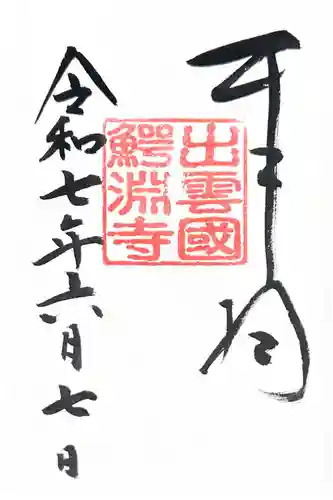 出雲國
鰐淵寺
令和七年六月七日